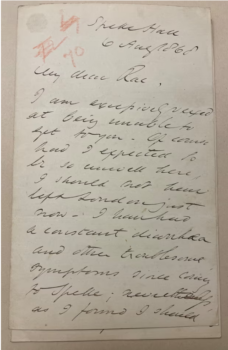 Speke Hall
6 Aug 1868
My dear Rae.
I am excessively vexed
at being unable to
get to you. Of course
had I expected to
be so unwell here,
I should not have
left London just
now. I have had
a constant diarrhœa
and other troublesome
symptoms since coming
to Speke; nevertheless
as I found I should